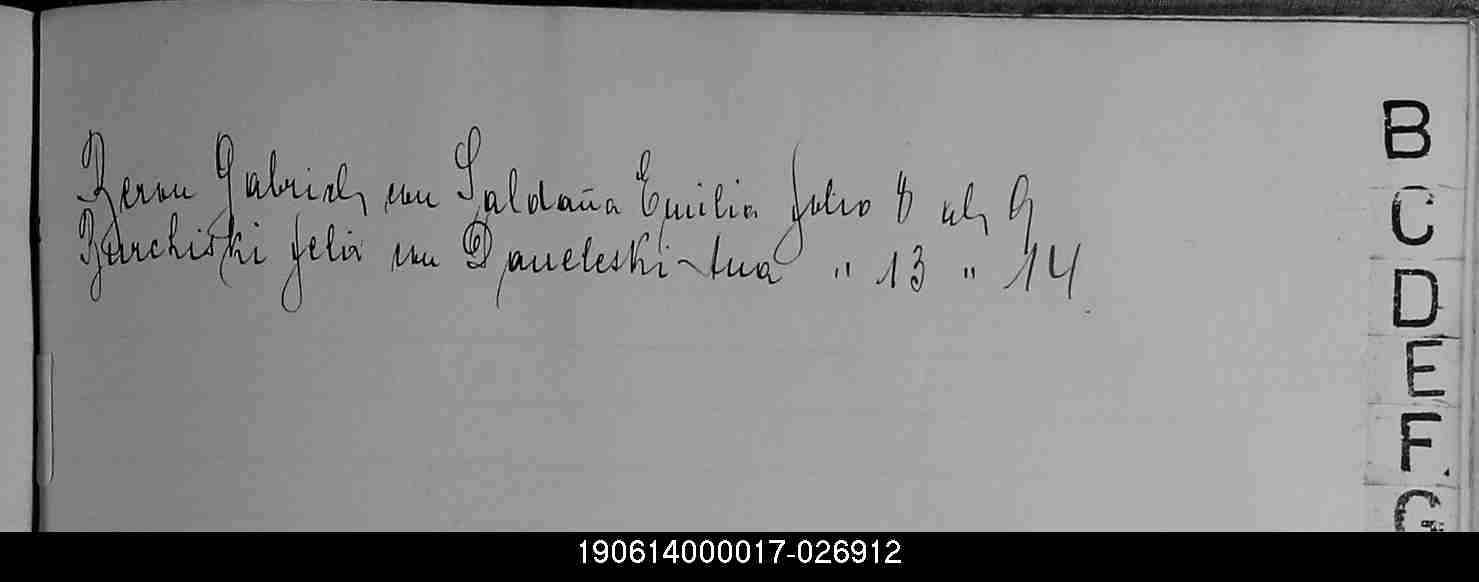 Beron Gabriel con Saldaña Emilia folio 8 al 9
Burchiski felix con Daneleski Ana " 13 " 14
B
C
D
E
F
G
190614000017-026912